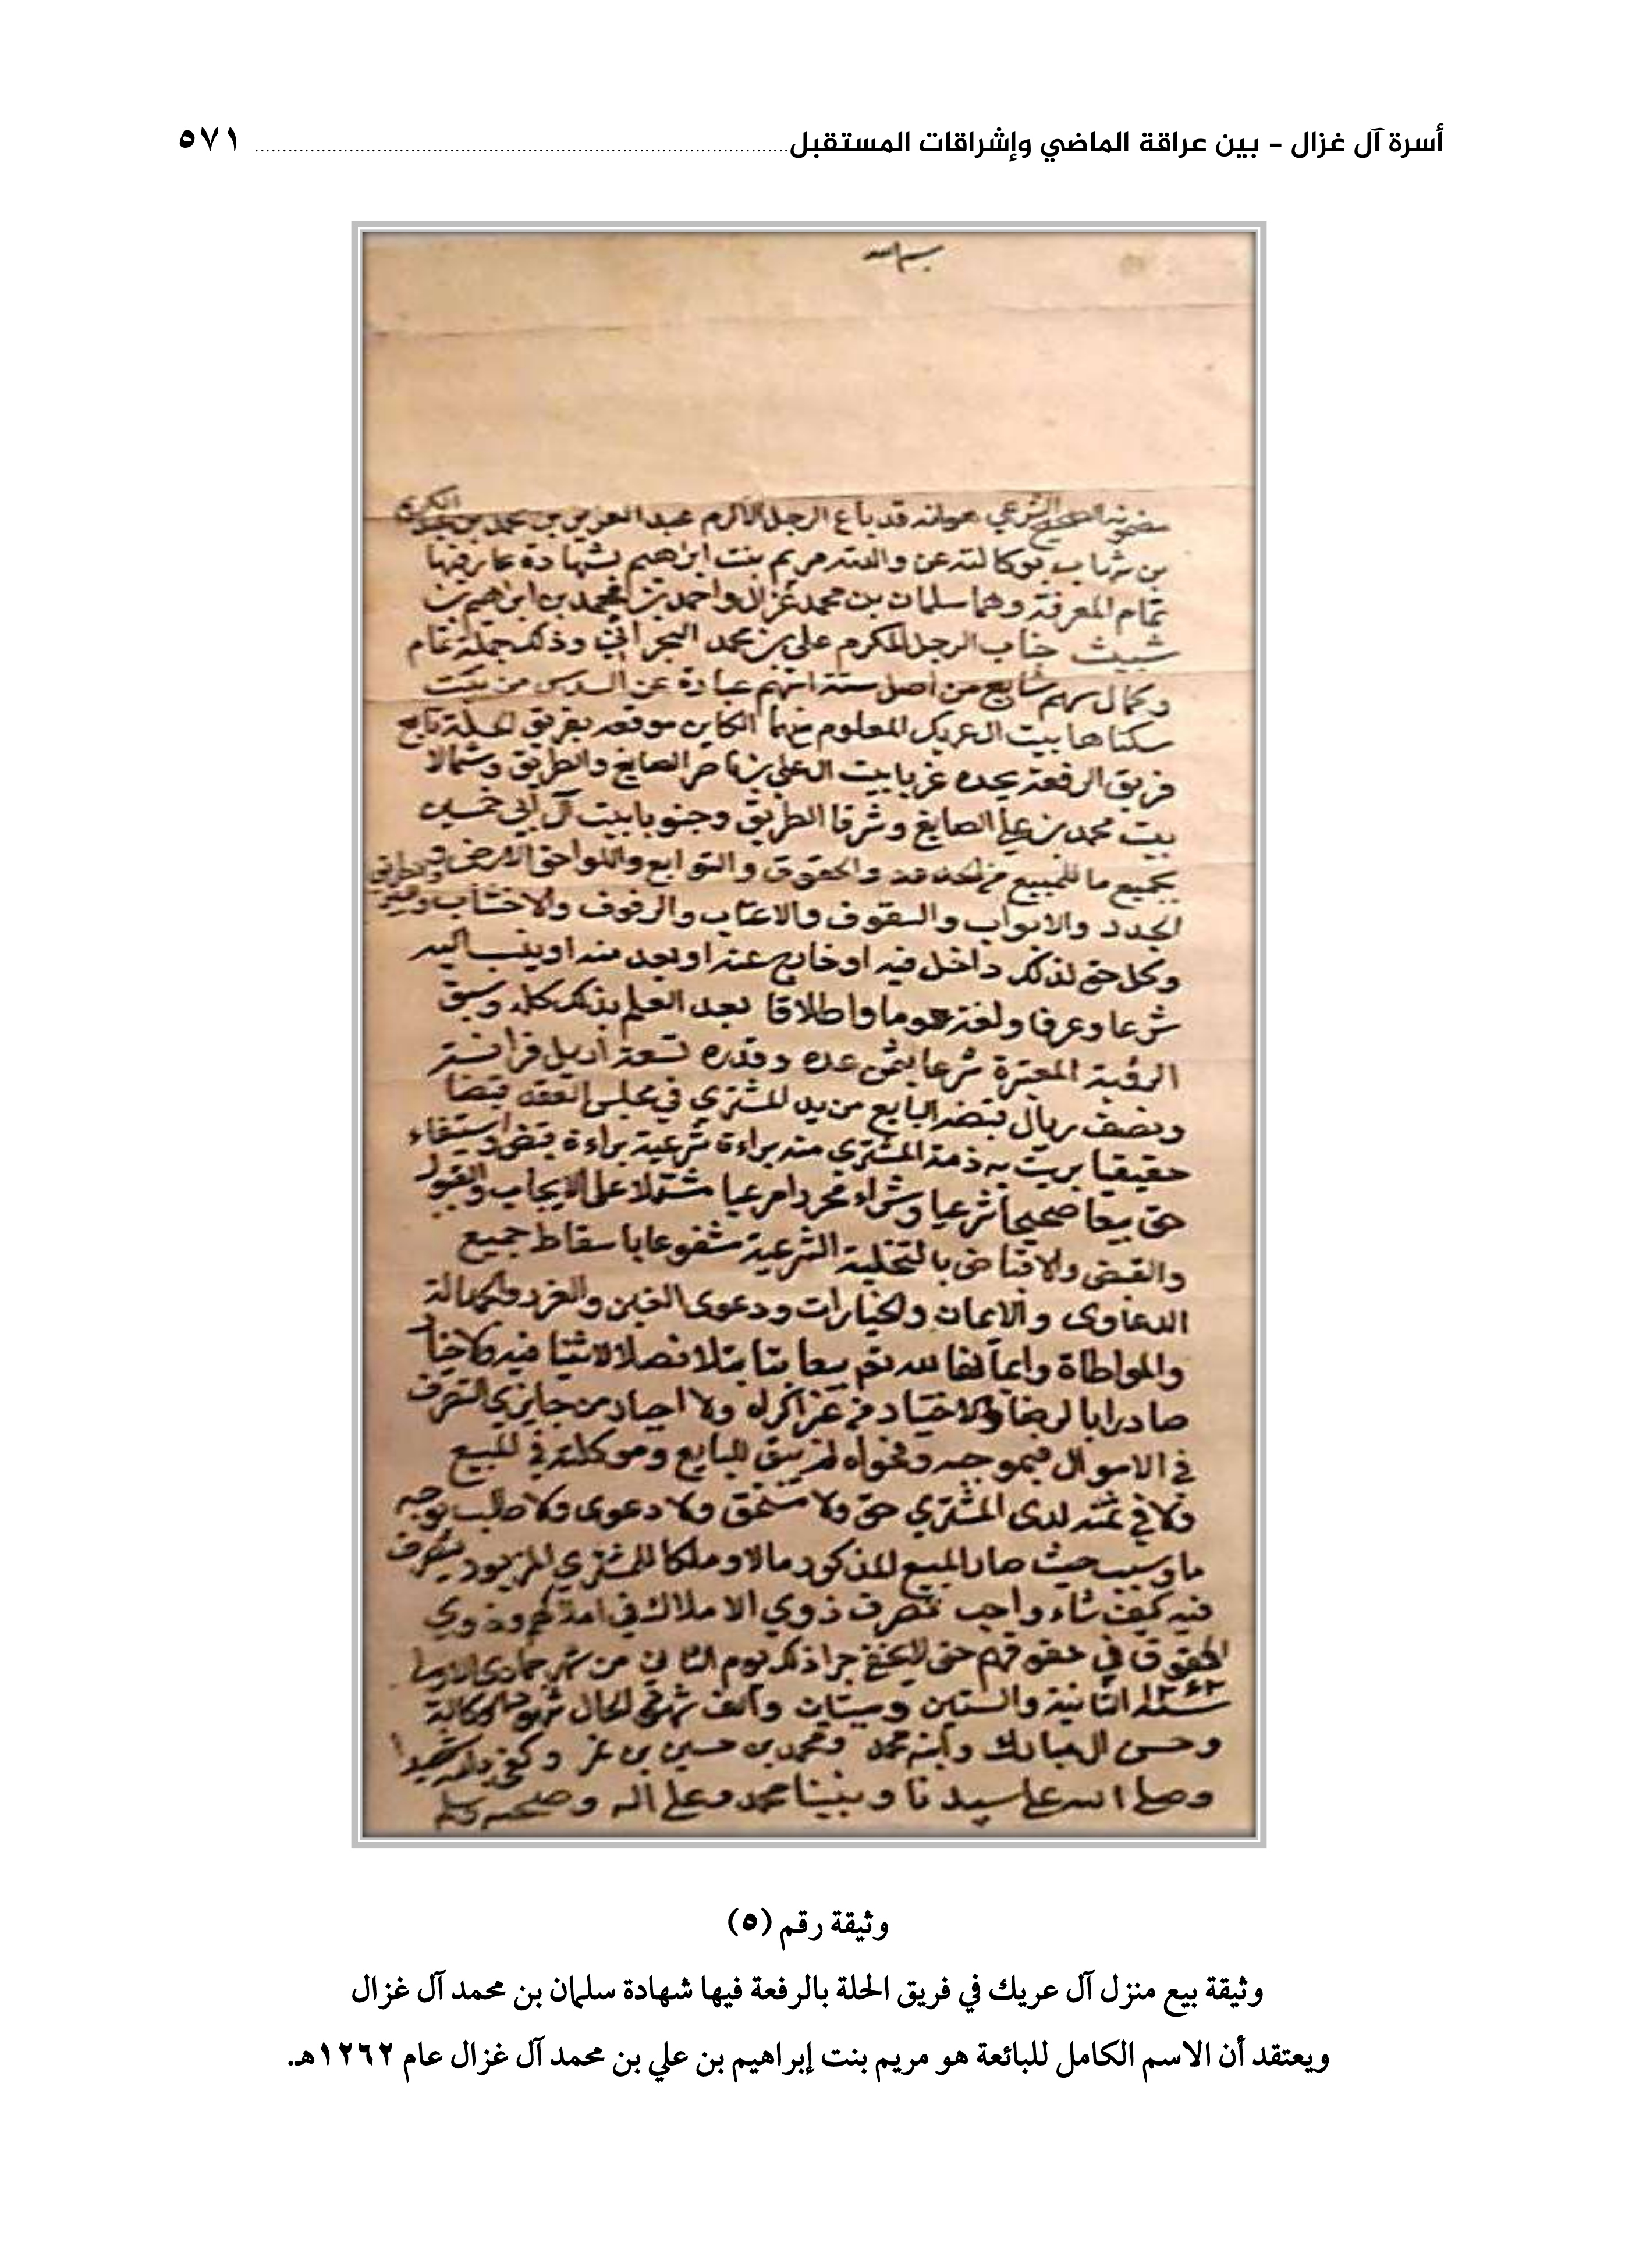 أسرة آل غزال - بين عراقة الماضي وإشراقات المستقبل ٥٧١
بسم الله
مضمونه الصحيح الشرعي هو انه قد باع الرجل الاكرم عبد العزيز بن محمد بن عبد الكريم
بن شهاب بوكالته عن والدته مريم بنت ابراهيم بشهادة عارفيها
تمام المعرفة وهما سلمان بن محمد غزال واحمد بن محمد بن ابراهيم بن
شبيث جناب الرجل المكرم علي بن محمد البحراني وذلك جملة تمام
وكمال سهم شايع من اصل ستة اسهم عبارة عن السدس من بيت
سكناها بيت ال عريك المعلوم منهما الكاين موقعه بفريق الحلة تابع
فريق الرفعة يحده غربا بيت ال علي بن ناصر الصايغ والطريق وشمالا
بيت محمد بن علي الصايغ وشرقا الطريق وجنوبا بيت آل ابي خمسين
بجميع ما للمبيع من الحدود والحقوق والتوابع واللواحق الارض والطرايق
الجدد والابواب والسقوف والاعتاب والرفوف والاخشاب وغير
وكل حق لذلك داخل فيه او خارج عنه او يعد منه او ينسب اليه
شرعا وعرفا ولغة عموما واطلاقا بعد العلم بذلك كله وسبق
الرؤية المعتبرة شرعا بثمن عده وقدره تسعة اريل فرانسه
ونصف ريال قبضه البايع من يد المشتري في مجلس العقد قبضا
حقيقيا بريت به ذمة المشتري منه براءة شرعية براءة قبض واستيفاء
حق بيعا صحيحا شرعيا وشراء محررا مرعيا مشتملا على الايجاب والقبول
والقبض والاقباض بالتخلية الشرعية مشفوعا باسقاط جميع
الدعاوى والايمان والخيارات ودعوى الغبن والغرر والجهالة
والمواطاة وايمانها لله تع بيعا بتا بتلا فصلا لا ثنيا فيه ولا خيار
صادرا بالرضا والاختيار من غير اكراه ولا اجبار من جايزي التصرف
في الاموال فبموجبه وفحواه لم يبق للبايع وموكلته في المبيع
ولا في ثمنه لدى المشتري حق ولا مستحق ولا دعوى ولا طلب بوجه
ما وسبب حيث صار المبيع المذكور مالا وملكا للمشتري المزبور يتصرف
فيه كيف شاء واحب تصرف ذوي الاملاك في املاكهم وذوي
الحقوق في حقوقهم حتى لا يخفى جرا ذلك يوم الثاني من شهر جمادى الاولى
سنة ١٢٦٢ الثانية والستين وميتان والف شهد الحال
وحسن ال مبارك وابنه محمد ومحمد بن حسين بن وكفى بالله شهيدا
وصلى الله على سيدنا ونبينا محمد وعلى اله وصحبه وسلم
وثيقة رقم (٥)
وثيقة بيع منزل آل عريك في فريق الحلة بالرفعة فيها شهادة سلمان بن محمد آل غزال
ويعتقد أن الاسم الكامل للبائعة هو مريم بنت إبراهيم بن علي بن محمد آل غزال عام ١٢٦٢هـ.